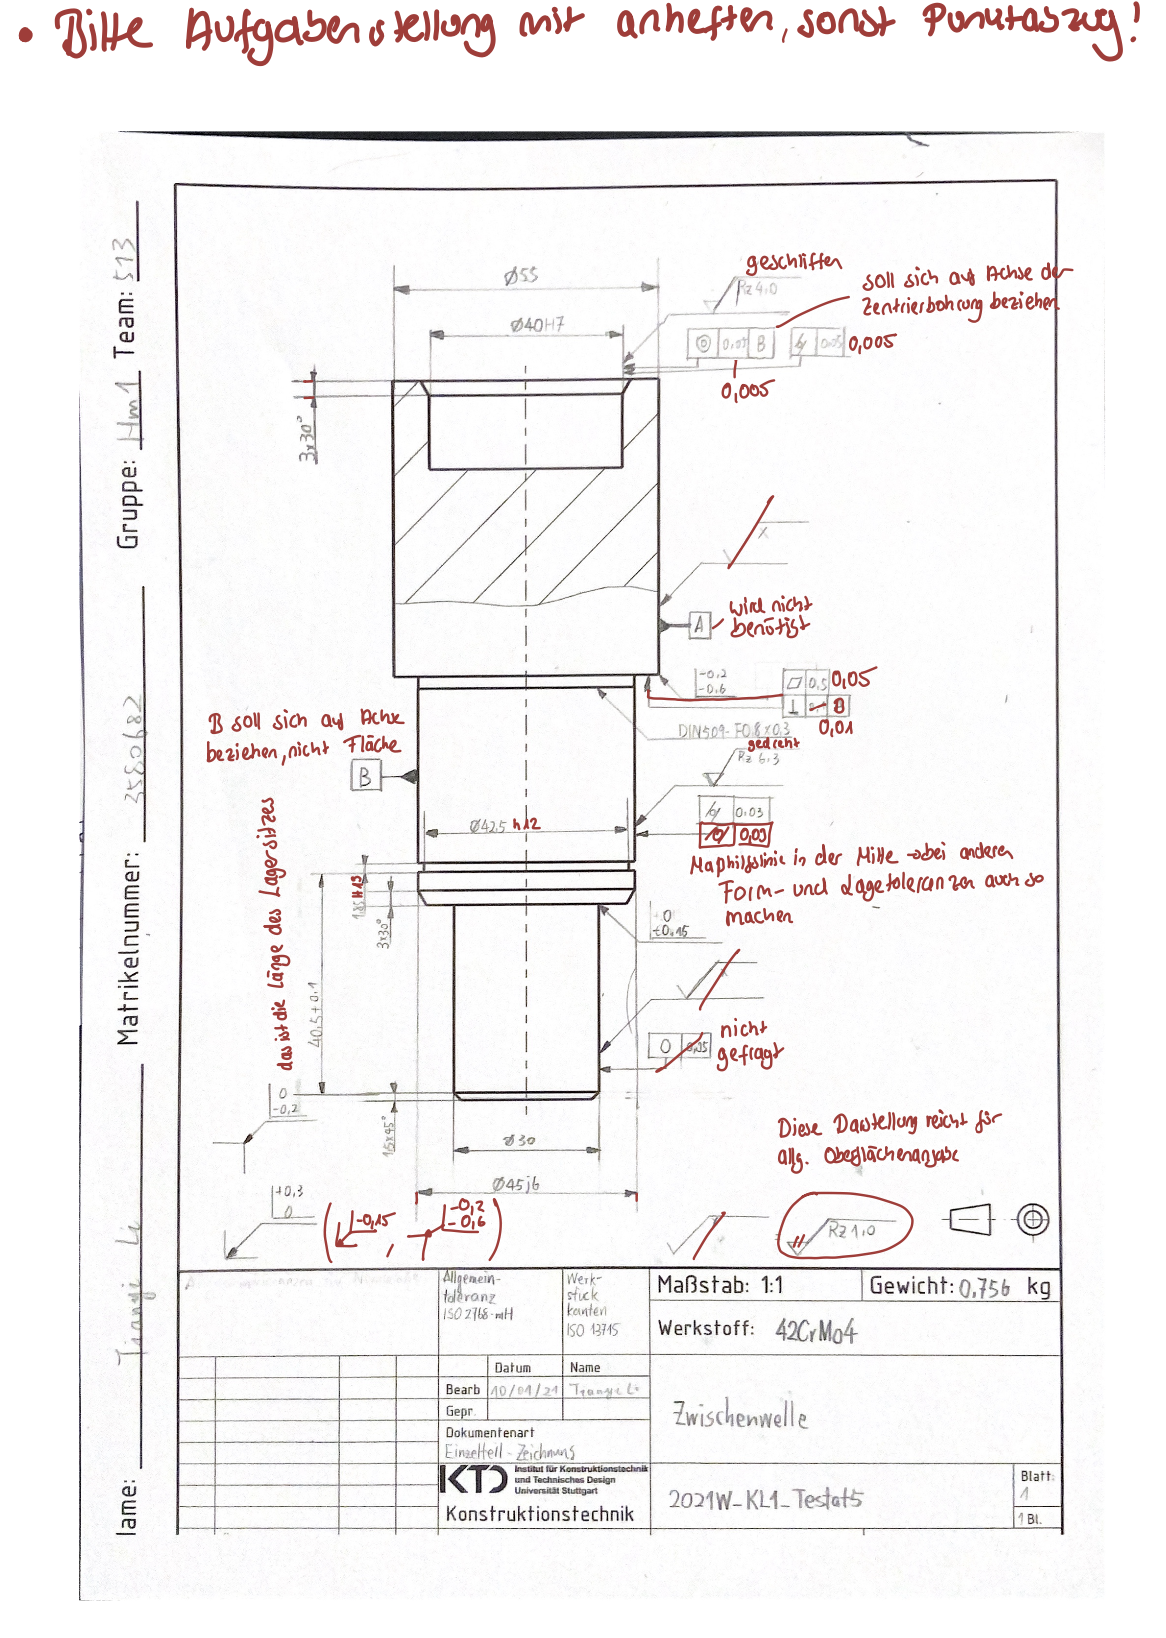 • Bitte Aufgabenstellung mit anheften, sonst Punktabzug!
Name:
Tianyi Li
Matrikelnummer: 3580682
Gruppe: Hm1 Team: 513
Ø55
Ø40H7
3x30°
geschliffen
Rz 4,0
soll sich auf Achse der
Zentrierbohrung beziehen
B
0,005
0,005
x
A
wird nicht
benötigt
-0,2
-0,6
0,5 0,05
B
0,01
DIN509-F0,8x0,3
gedreht
Rz 6,3
0,03
0,03
B soll sich auf Achse
beziehen, nicht Fläche
B
Ø42,5 h12
Maßhilfslinie in der Mitte → bei anderen
Form- und Lagetoleranzen auch so
machen
das ist die Länge des Lagersitzes
40,5+0,1
1,85 H13
3x30°
+0
±0,15
x
nicht
gefragt
0,05
0
-0,2
1,5x45°
Ø30
Ø45j6
Diese Darstellung reicht für
allg. Oberflächenangabe
+0,3
0
( -0,15 , -0,2
-0,6 )
Rz 1,0
Allgemein-
toleranz
ISO 2768-mH
Werk-
stück
kanten
ISO 13715
Maßstab: 1:1
Gewicht: 0,756 kg
Werkstoff: 42CrMo4
Datum Name
Bearb 10/01/21 Tianyi Li
Gepr.
Dokumentenart
Einzelteil-Zeichnung
Zwischenwelle
KTD Institut für Konstruktionstechnik
und Technisches Design
Universität Stuttgart
Konstruktionstechnik
2021W_KL1_Testat5
Blatt:
1
1 Bl.